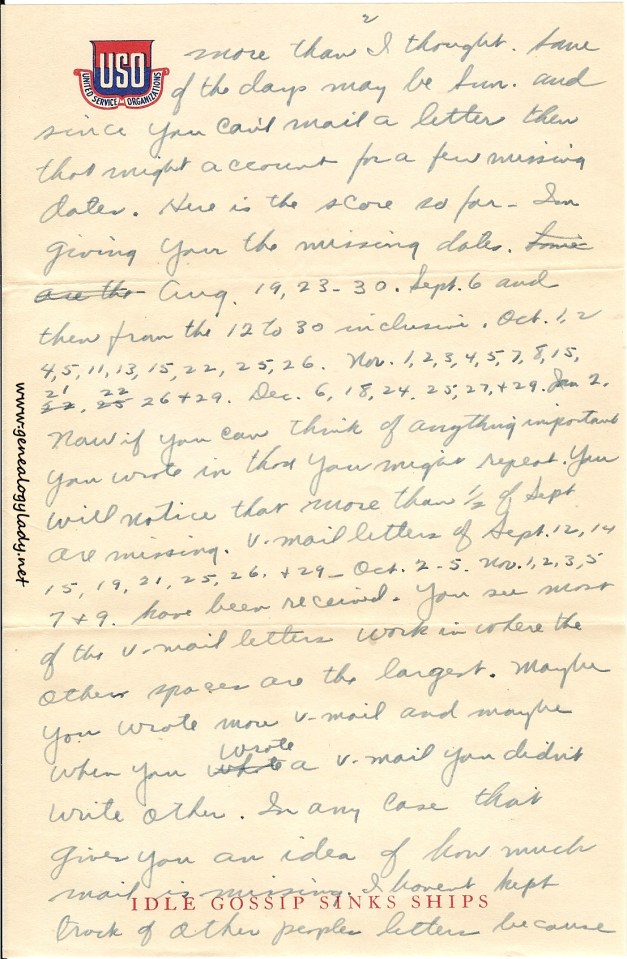 2
USO
UNITED SERVICE ORGANIZATIONS
more than I thought. Some
of the days may be Sun. and
since you can't mail a letter then
that might account for a few missing
dates. Here is the score so far - Im
giving you the missing dates. Some
are the Aug. 19, 23-30. Sept. 6 and
then from the 12 to 30 inclusive. Oct. 1, 2
4, 5, 11, 13, 15, 22, 25, 26. Nov. 1, 2, 3, 4, 5, 7, 8, 15,
21 22
22, 25 26 + 29. Dec. 6, 18, 24, 25, 27, + 29. Jan 2.
Now if you can think of anything important
you wrote in those you might repeat. You
will notice that more than 1/2 of Sept
are missing. V-mail letters of Sept. 12, 14
15, 19, 21, 25, 26. + 29 - Oct. 2 - 5. Nov. 1, 2, 3, 5
7 + 9. have been received. You see most
of the v-mail letters work in where the
other spaces are the largest. Maybe
you wrote more v-mail and maybe
wrote
when you a v-mail you didn't
write other. In any case that
gives you an idea of how much
mail is missing. I havent kept
IDLE GOSSIP SINKS SHIPS
track of other peoples letters because
www.genealogylady.net